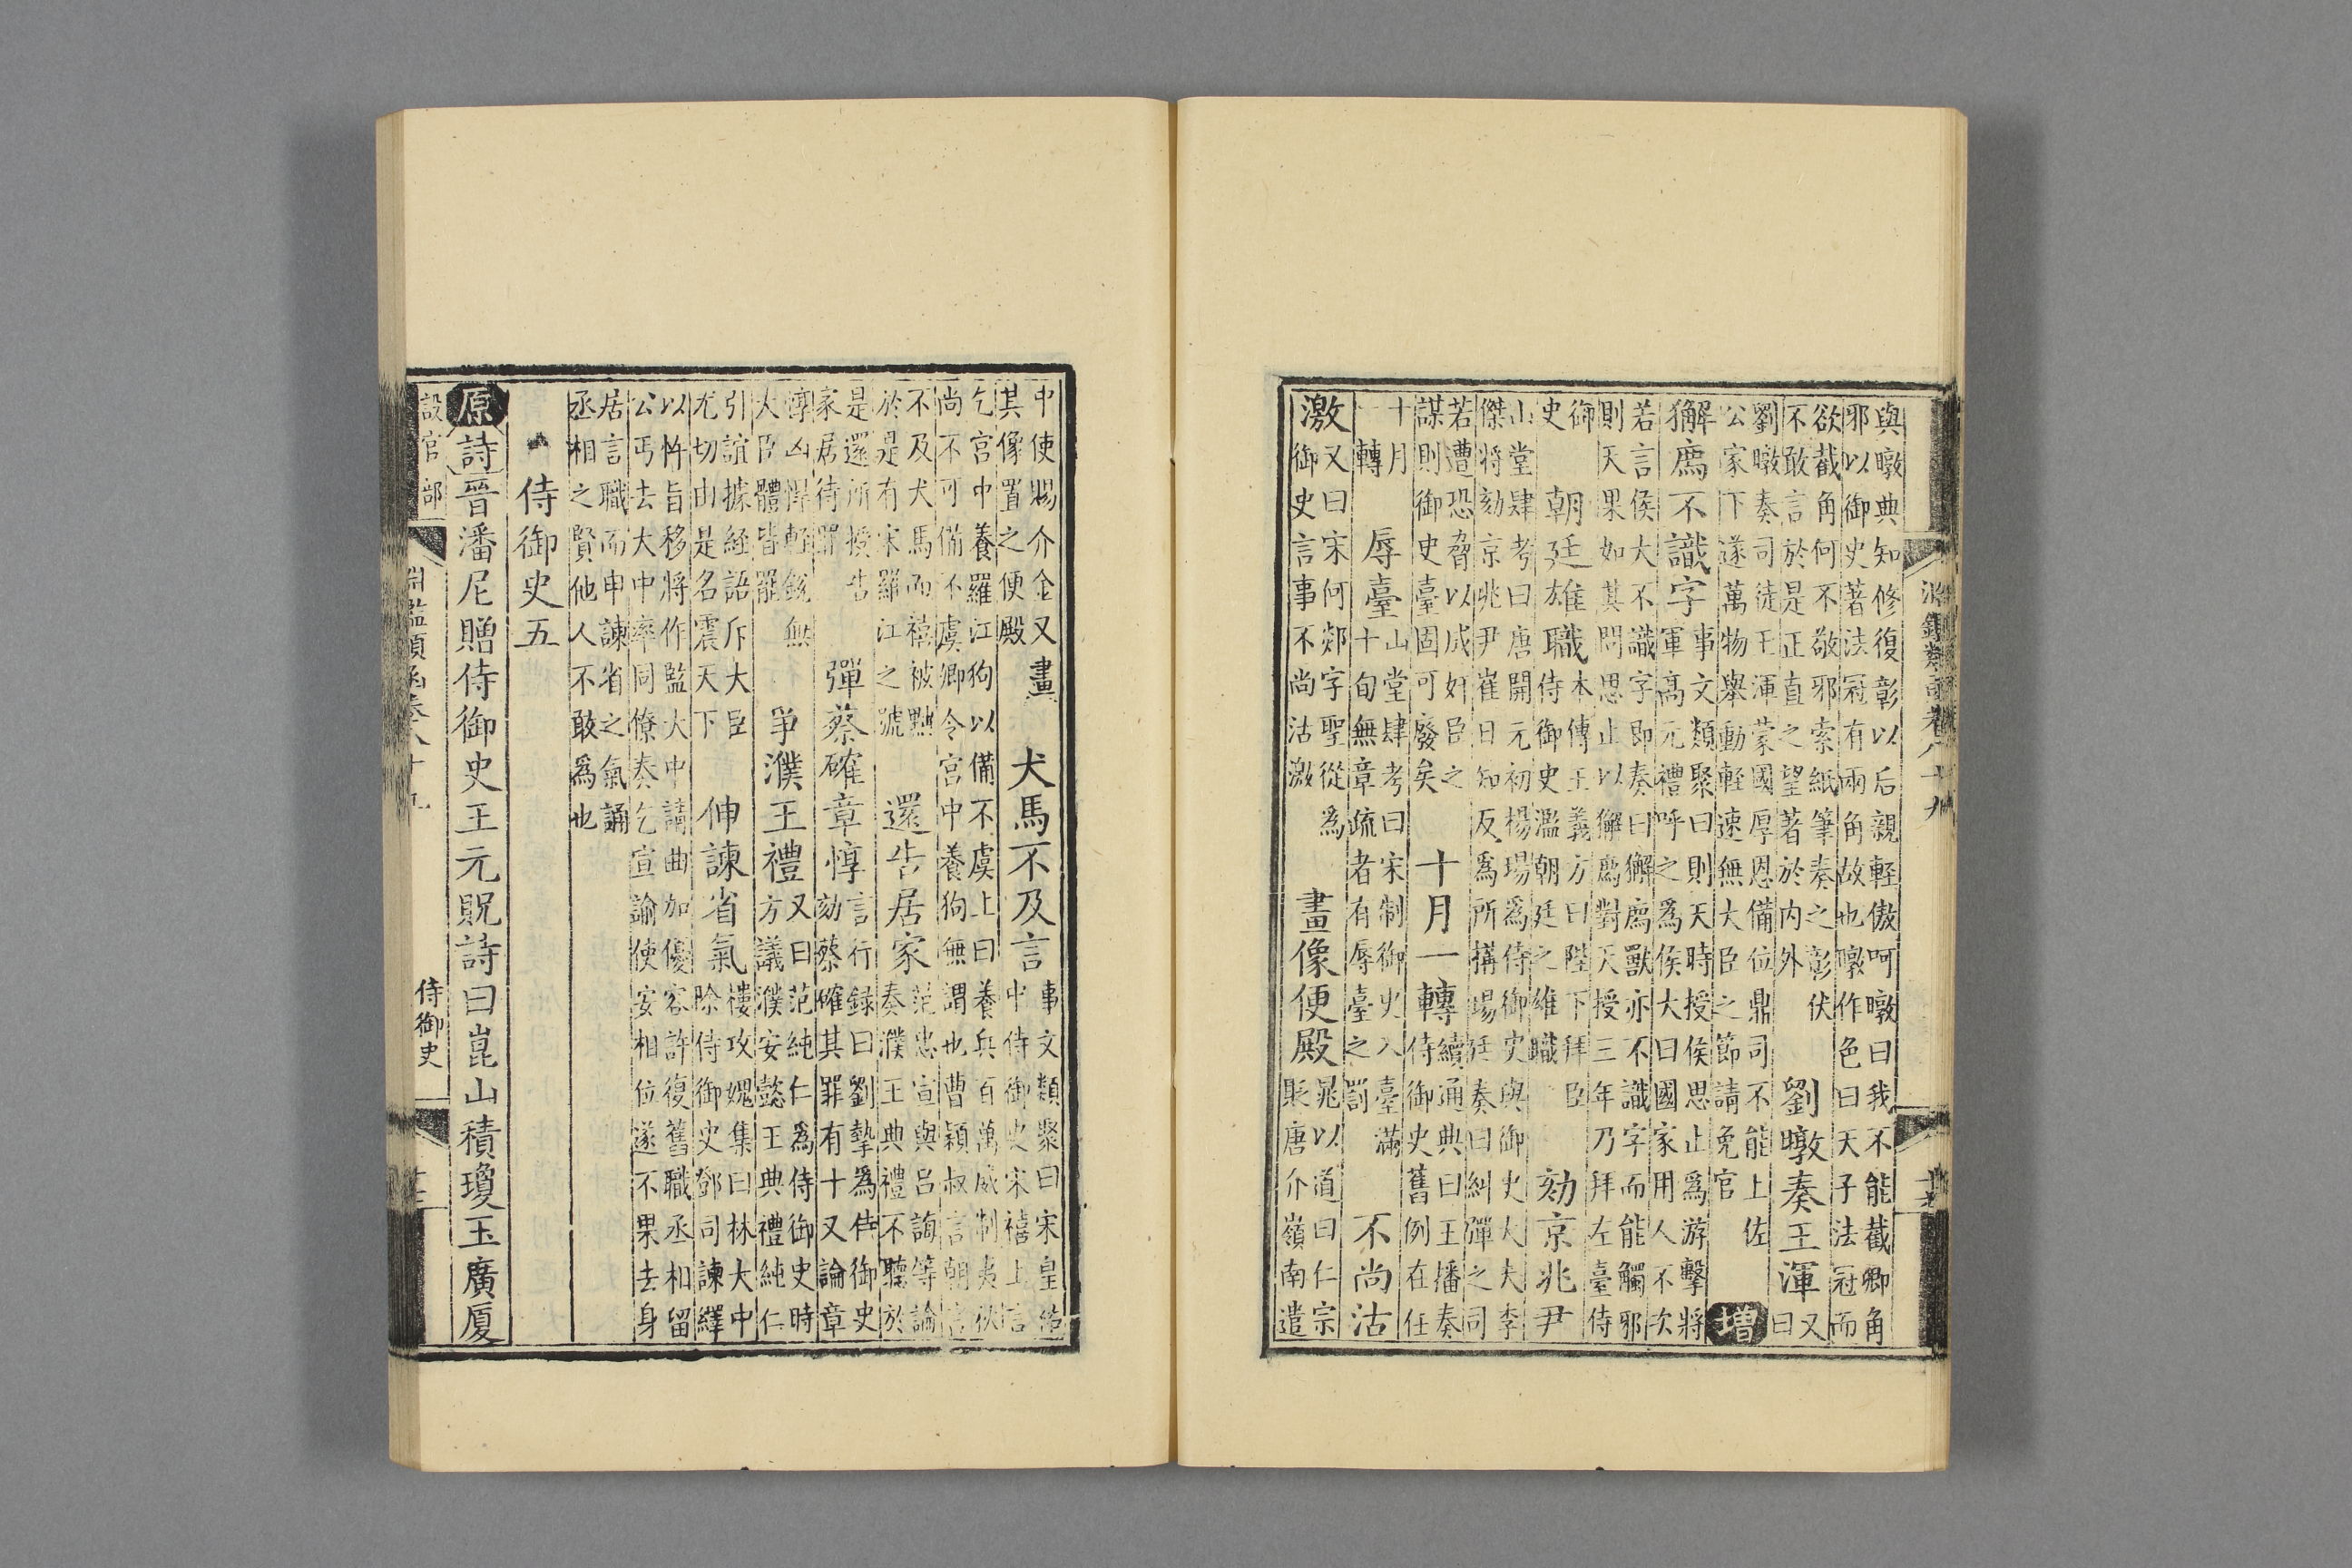 與暾典知修復彰以后親輕傲呵暾曰我不能截卿角
邪以御史著法冠有兩角故也暾作色曰天子法冠而
欲截角何不敬邪索紙筆奏之彰伏
不敢言於是正直之望著於内外
劉暾奏王渾
又
曰
劉暾奏司徒王渾蒙國厚恩備位鼎司不能上佐
公家下遂萬物舉動輕速無大臣之節請免官
增
獬廌不識字
事文類聚曰則天時授侯思止爲游擊將
軍高元禮呼之爲侯大曰國家用人不次
若言侯大不識字即奏曰獬廌獸亦不識字而能觸邪
則天果如其問思止以獬廌對天授三年乃拜左臺侍
御
史
朝廷雄職
本傳王義方曰陛下拜臣
侍御史濫朝廷之雄職
劾京兆尹
山堂肆考曰唐開元初楊瑒爲侍御史與御史大夫李
傑將劾京兆尹崔日知反爲所搆瑒廷奏曰糾彈之司
若遭恐脅以成奸臣之
謀則御史臺固可廢矣
十月一轉
續通典曰王播奏
侍御史舊例在任
十月
一轉
辱臺
山堂肆考曰宋制御史入臺滿
十旬無章疏者有辱臺之罰
不尚沽
激
又曰宋何郯字聖從爲
御史言事不尚沽激
畫像便殿
晁以道曰仁宗
貶唐介嶺南遣
中使賜介金又畫
其像置之便殿
犬馬不及言
事文類聚曰宋皇祐
中侍御史宋禧上言
乞宮中養羅江狗以備不虞上曰養兵百萬威制夷狄
尚不可備不虞卿令宮中養狗無謂也曹穎叔言朝言
不及犬馬而禧被黜
於是有宋羅江之號
還告居家
范忠宣與呂誨等論
奏濮王典禮不聽於
是還所授告
家居待罪
彈蔡確章惇
言行録曰劉摯爲侍御史
劾蔡確其罪有十又論章
惇凶悍輕銳無
大臣體皆罷
爭濮王禮
又曰范純仁爲侍御史時
方議濮安懿王典禮純仁
引誼據經語斥大臣
尤切由是名震天下
伸諫省氣
樓攻媿集曰林大中
除侍御史鄧司諫繹
以忤旨移將作監大中請曲加優容許復舊職丞相留
公丐去大中率同僚奏乞宣諭使安相位遂不果去身
居言職而申諫省之氣誦
丞相之賢他人不敢爲也
侍御史五
原
詩晉潘尼贈侍御史王元貺詩曰崑山積瓊玉廣厦
設官部
淵鑑類函卷八十九
侍御史